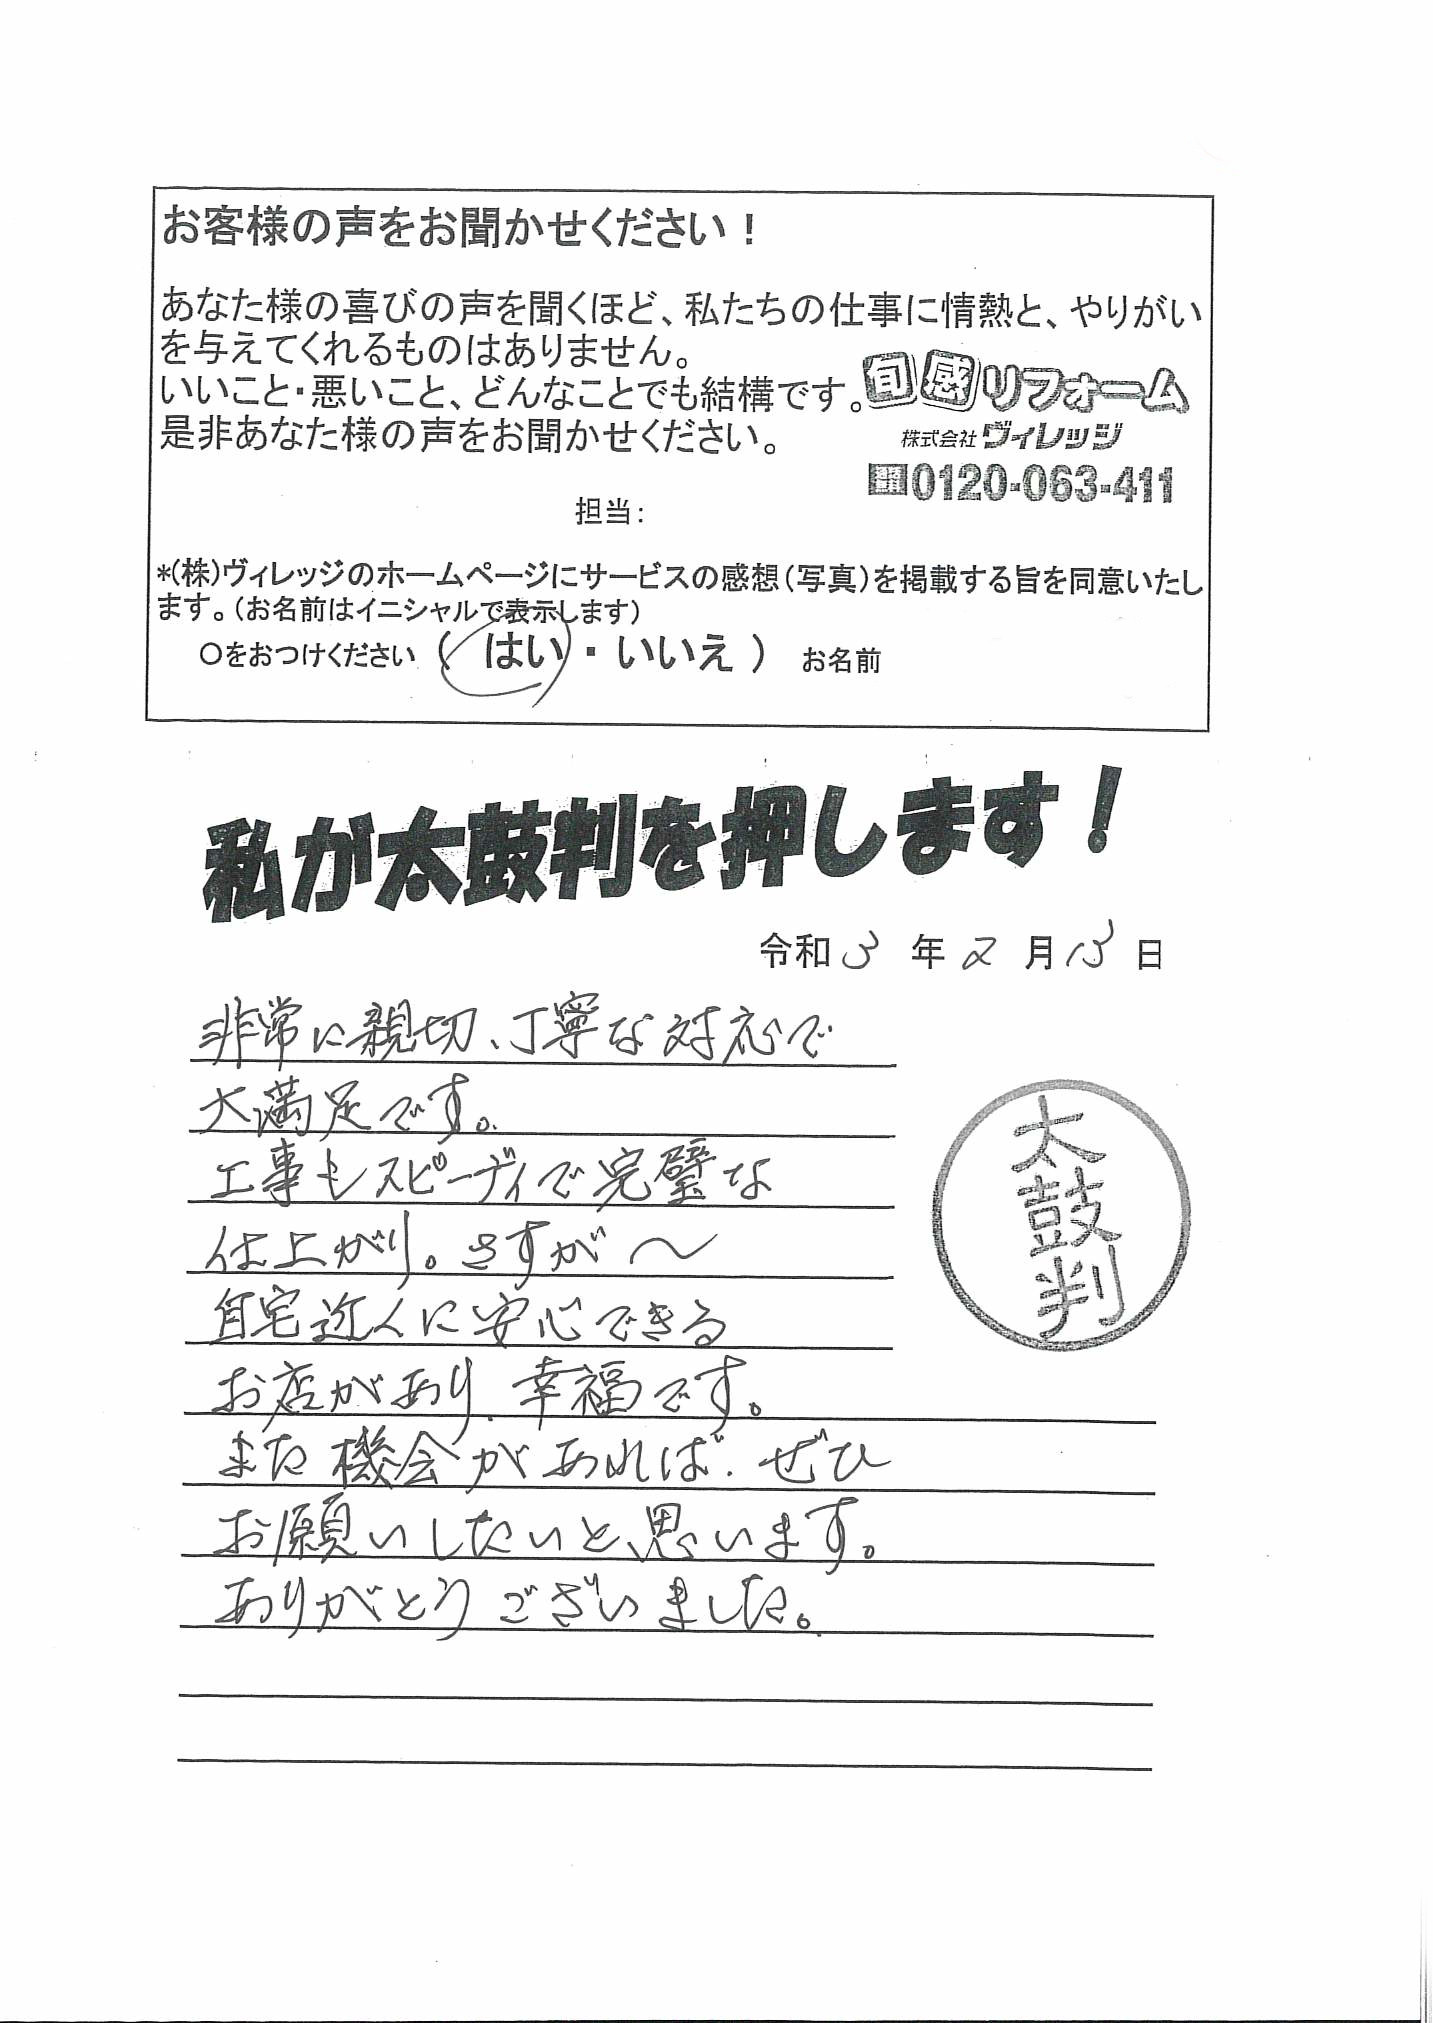 お客様の声をお聞かせください！
あなた様の喜びの声を聞くほど、私たちの仕事に情熱と、やりがい
を与えてくれるものはありません。
いいこと・悪いこと、どんなことでも結構です。
是非あなた様の声をお聞かせください。
旬感リフォーム
株式会社ヴィレッジ
0120-063-411
担当：
*(株)ヴィレッジのホームページにサービスの感想(写真)を掲載する旨を同意いたし
ます。(お名前はイニシャルで表示します)
○をおつけください ( はい・いいえ ) お名前
私が太鼓判を押します！
令和 3 年 2 月 13 日
非常に親切、丁寧な対応で
大満足です。
工事もスピーディで完璧な
仕上がり。さすが〜
自宅近くに安心できる
お店があり、幸福です。
また機会があれば、ぜひ
お願いしたいと思います。
ありがとうございました。
太鼓判